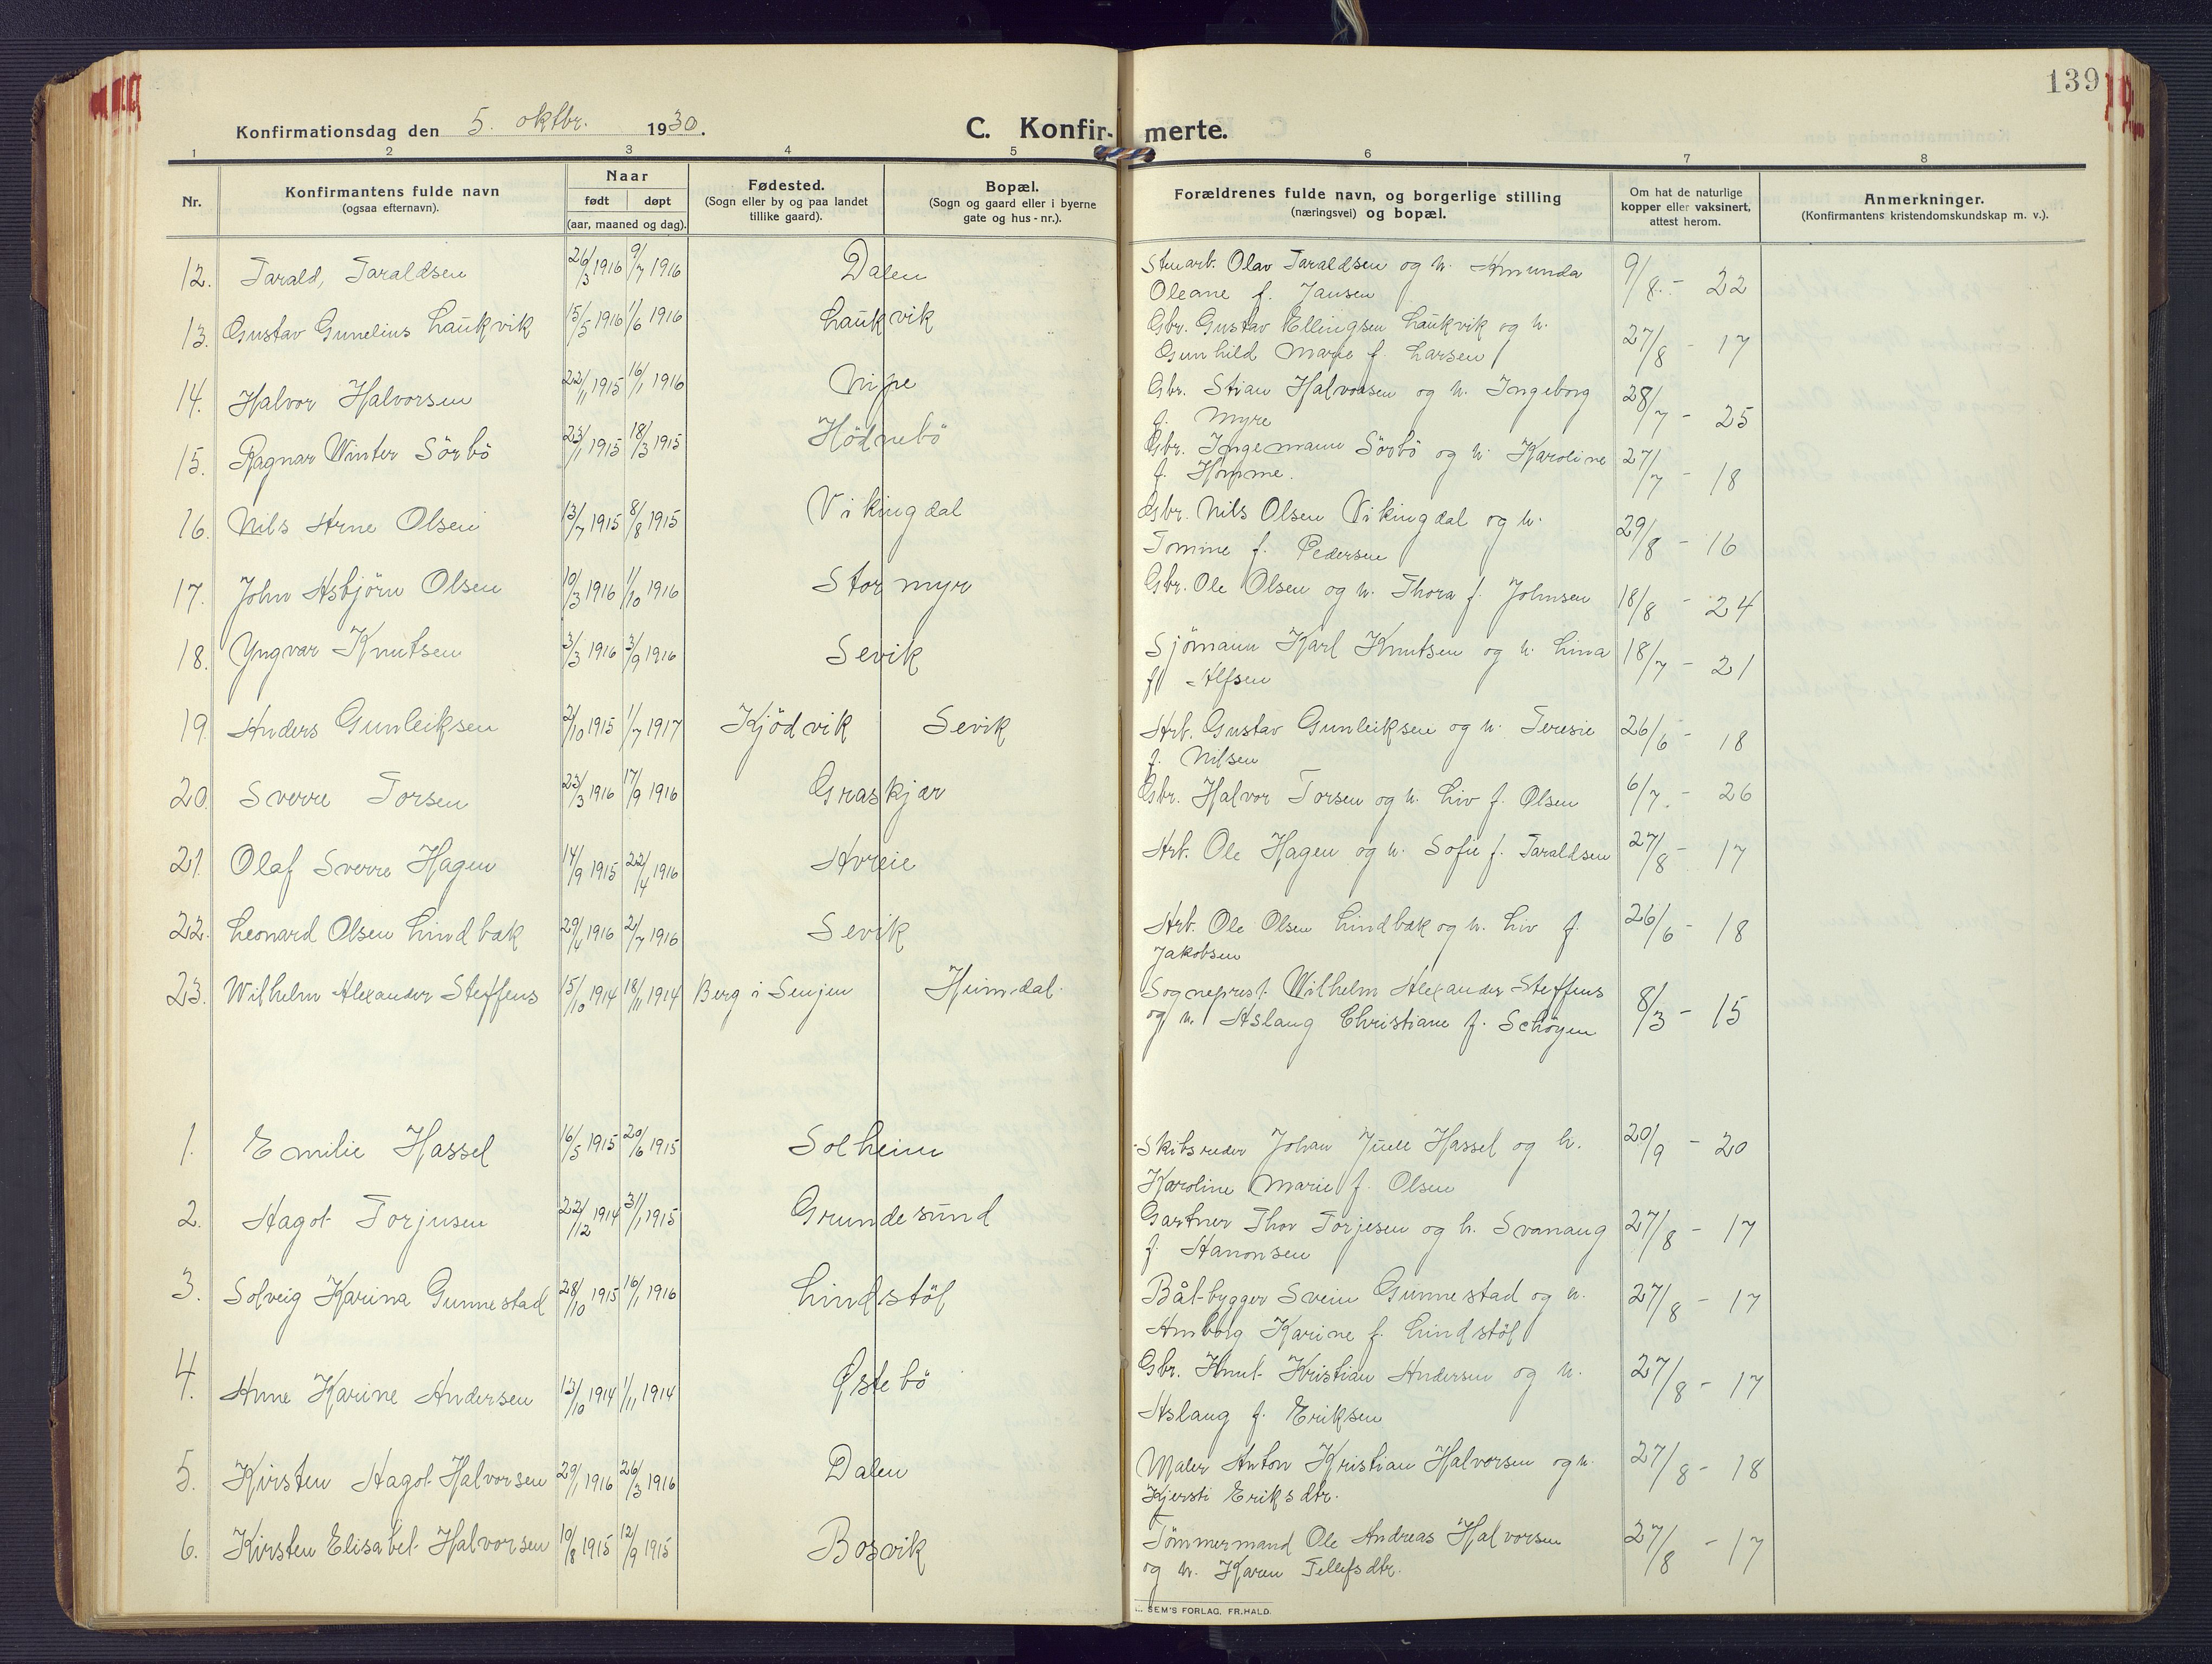 139
Konfirmationsdag den 5. oktbr. 1930.
C. Konfir- merte.
1 2 3 4 5 6 7 8
Nr.
Konfirmantens fulde navn
(ogsaa efternavn).
Naar
født døpt
(aar, maaned og dag).
Fødested.
(Sogn eller by og paa landet
tillike gaard).
Bopæl.
(Sogn og gaard eller i byerne
gate og hus-nr.).
Forældrenes fulde navn, og borgerlige stilling
(næringsvei) og bopæl.
Om hat de naturlige
kopper eller vaksinert,
attest herom.
Anmerkninger.
(Konfirmantens kristendomskundskap m. v.).
12. Tarald, Taraldsen 26/3 1916 9/7 1916 Dalen Stuarb. Olav Taraldsen og h. Amunda 9/8 - 22
Oleane f. Jansen
13. Gustav Gunelius Laukvik 15/5 1916 1/6 1916 Laukvik Gbr. Gustav Ellingsen Laukvik og h. 27/8 - 17
Gunhild Marie f. Larsen
14. Halvor Halvorsen 22/11 1915 16/1 1916 Nipe Gbr. Stian Halvorsen og h. Ingeborg 28/7 - 25
f. Myre
15. Ragnar Winter Sörbö 23/1 1915 18/3 1915 Hödnebö Gbr. Ingemann Sörbö og h. Karoline 27/7 - 18
f. Homme.
16. Nils Arne Olsen 13/7 1915 8/8 1915 Vikingdal Gbr. Nils Olsen Vikingdal og h. 29/8 - 16
Tomine f. Pedersen
17. John Asbjörn Olsen 10/3 1916 1/10 1916 Stormyr Gbr. Ole Olsen og h. Thora f. Johnsen 18/8 - 24
18. Yngvar Knutsen 3/3 1916 3/9 1916 Sevik Sjömann Karl Knutsen og h. Lina 18/7 - 21
f. Alfsen
19. Anders Gunleiksen 2/10 1915 1/7 1917 Kjödvik Sevik Arb. Gustav Gunleiksen og h. Teresie 26/6 - 18
f. Nilsen
20. Sverre Torsen 23/3 1916 17/9 1916 Graskjær Gbr. Halvor Torsen og h. Liv f. Olsen 6/7. - 26
21. Olaf Sverre Hagen 14/9 1915 22/4 1916 Avreie Arb. Ole Hagen og h. Sofie f. Taraldsen 27/8 - 17
22. Leonard Olsen Lindbæk 29/4 1916 2/7 1916 Sevik Arb. Ole Olsen Lindbæk og h. Liv f. 26/6 - 18
Jakobsen
23. Wilhelm Alexander Steffens 15/10 1914 18/11 1914 Berg i Senjen Heimdal. Sogneprest Wilhelm Alexander Steffens 8/3 - 15
og h. Aslaug Christiane f. Schöyen
1. Emilie Hassel 16/5 1915 20/6 1915 Solheim Skibsreder Johan Juell Hassel og h. 20/9 - 20
Karoline Marie f. Olsen
2. Aagot Torjusen 22/12 1914 31/1 1915 Grundesund Gartner Thor Torjesen og h. Svanaug 27/8 - 17
f. Aanonsen
3. Solveig Karina Gunnestad 28/10 1915 16/1 1916 Lindstöl Båt-bygger Svein Gunnestad og h. 27/8 - 17
Amborg Karine f. Lindstöl
4. Anne Karine Andersen 13/10 1914 1/11 1914 Østebö Gbr. Knut Kristian Andersen og h. 27/8 - 17
Aslaug f. Eriksen
5. Kirsten Aagot Halvorsen 29/1 1916 26/3 1916 Dalen Maler Anton Kristian Halvorsen og h. 27/8 - 18
Kjersti Eriksdtr.
6. Kirsten Elisabet Halvorsen 10/8 1915 12/9 1915 Bosvik Tömmermand Ole Andreas Halvorsen 27/8 - 17
og h. Karen Tellefsdtr.
SEM'S FORLAG, FR. HALD.